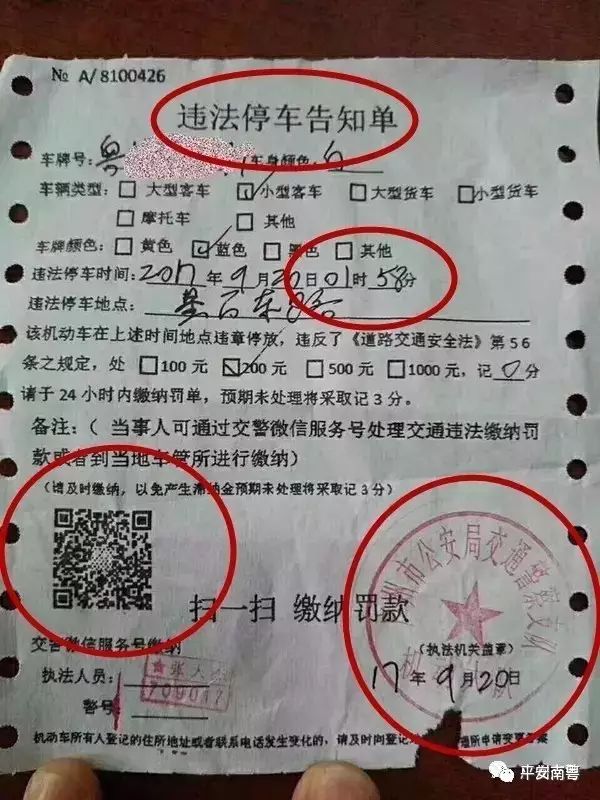 № A/8100426
违法停车告知单
车牌号：粤 车身颜色：白
车辆类型：□ 大型客车 ☑ 小型客车 □ 大型货车 □ 小型货车
□ 摩托车 □ 其他
车牌颜色：□ 黄色 ☑ 蓝色 □ 黑色 □ 其他
违法停车时间：2017 年 9 月 20 日 01 时 58 分
违法停车地点：
该机动车在上述时间地点违章停放，违反了《道路交通安全法》第 56
条之规定，处 □ 100 元 ☑ 200 元 □ 500 元 □ 1000 元，记 0 分
请于 24 小时内缴纳罚单，预期未处理将采取记 3 分。
备注：（ 当事人可通过交警微信服务号处理交通违法缴纳罚
款或者到当地车管所进行缴纳）
（请及时缴纳，以免产生滞纳金预期未处理将采取记 3 分）
州市公安局交通警察支队
扫一扫 缴纳罚款
交警微信服务号缴纳
（执法机关盖章）
执法人员：
17 年 9 月 20 日
警号：
机动车所有人登记的住所地址或者联系电话发生变化的，请及时向登记
申请变更备案
平安南粤